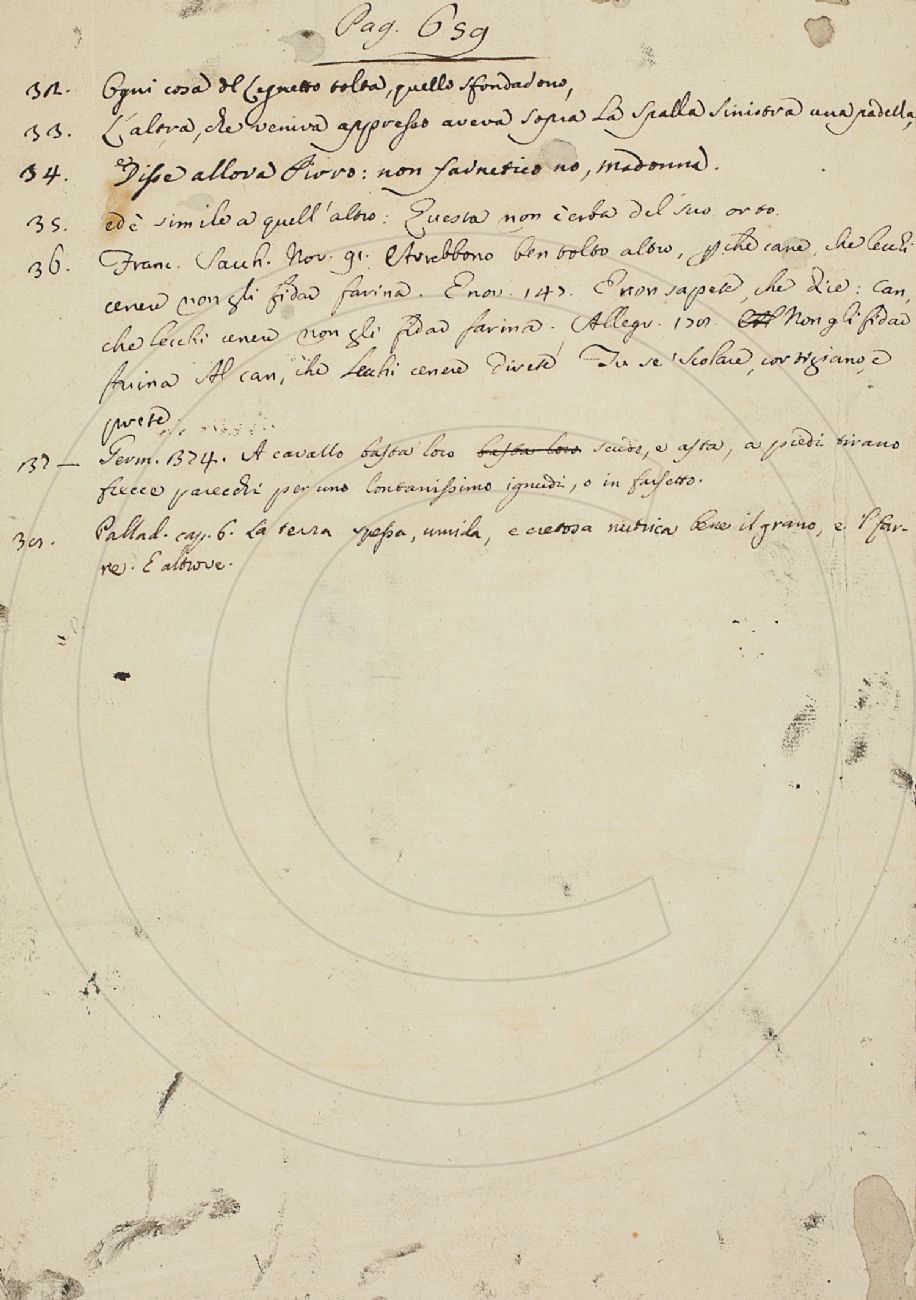 Pag. 659
32. Ogni cosa del Legnetto tolta, quello sfondadono,
33. L'altra, che veniva appresso aveva sopra La Spalla sinistra una padella,
34. Disse allora Pirro: non farnetico no, madonna.
35. ed è simile a quell'altro: Questa non è erba del suo orto.
36. Franc. Sacch. Nov. 91. Avrebbono ben tolto altro, p.che cane, che lecchi
cenere non gli fidar farina. E nov. 147. E non sapete, che dice: Can,
che lecchi cenere non gli fidar farina. Allegr. Non gli fidar
farina Al can, che lecchi cenere direte Tu se' Scolare, cortigiano, e
prete.
37 — Germ. 1374. A cavallo basta loro basta loro scudo, e asta, a piedi tirano
frecce parecchi per uno lontanissimo ignudi, o in farsetto.
38. Pallad. cap. 6. La terra spessa, umida, e cretosa nutrica bene il grano, e 'l far-
re. E altrove.